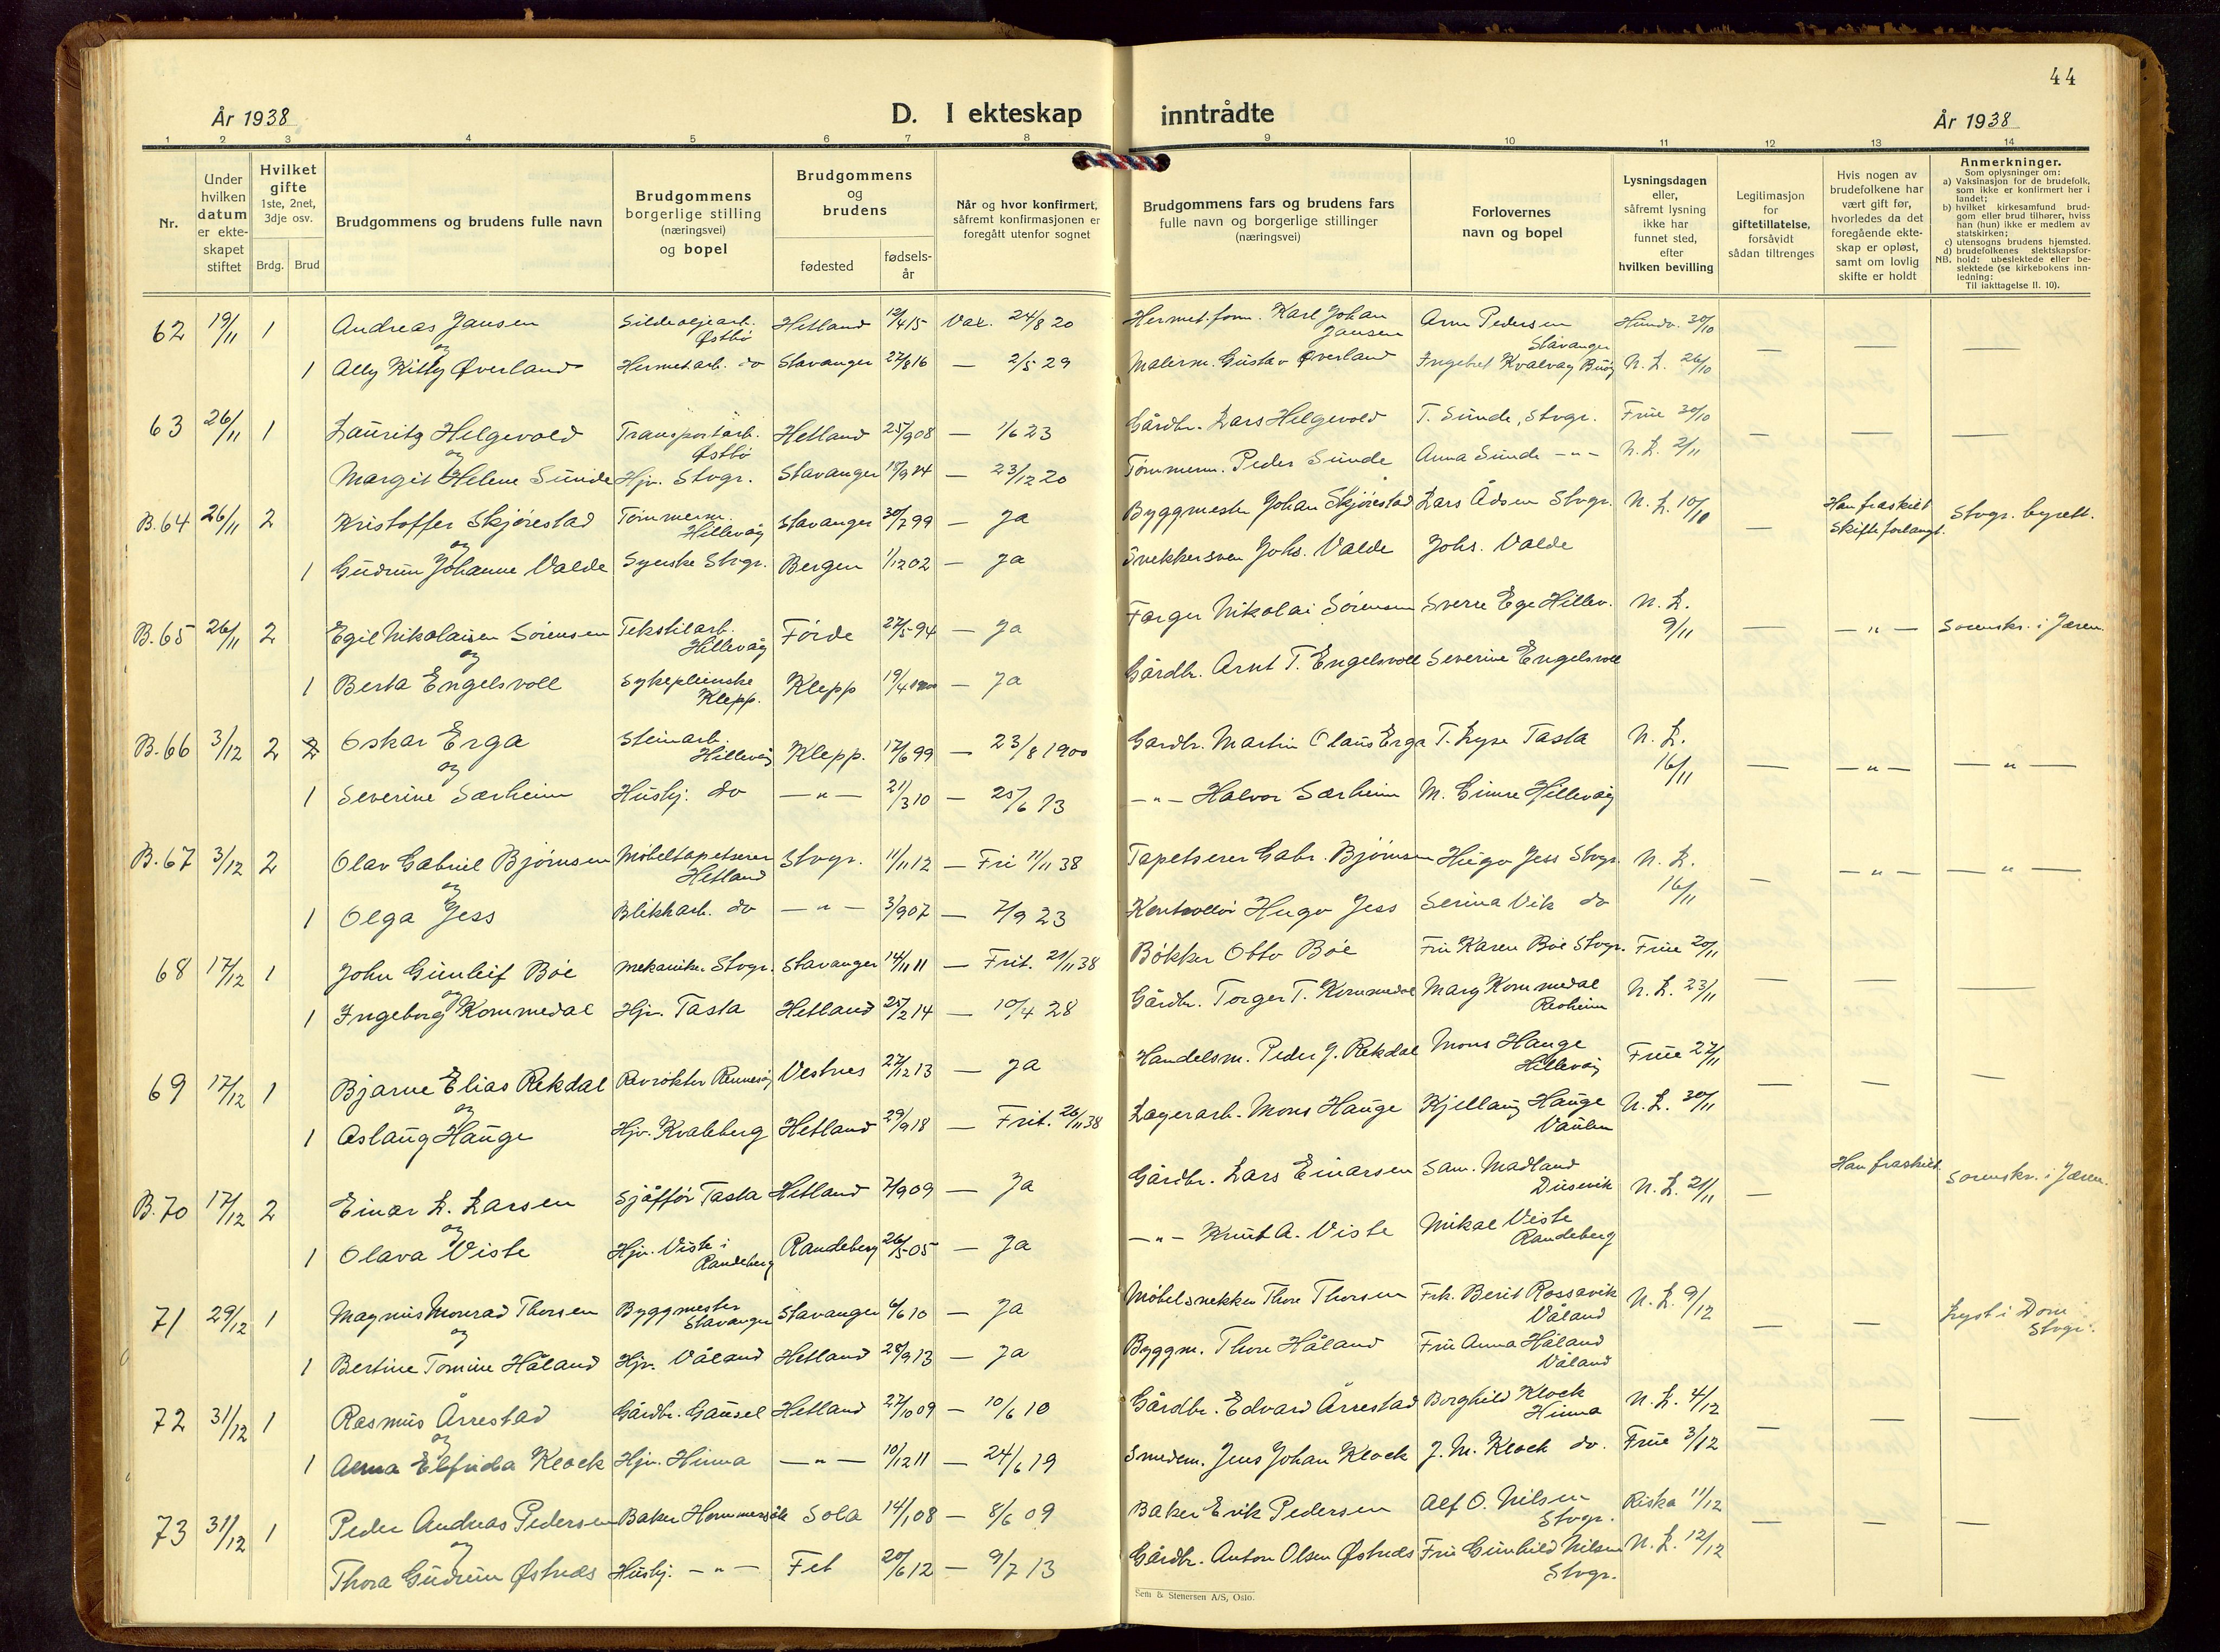 44
År 1938
D. I ekteskap inntrådte
År 1938
1 2 3 4 5 6 7 8 9 10 11 12 13 14
Nr.
Under hvilken datum er ekte-skapet stiftet
Hvilket gifte 1ste, 2net, 3dje osv.
Brdg. Brud
Brudgommens og brudens fulle navn
Brudgommens borgerlige stilling (næringsvei) og bopel
Brudgommens og brudens
fødested
fødsels-år
Når og hvor konfirmert, såfremt konfirmasjonen er foregått utenfor sognet
Brudgommens fars og brudens fars fulle navn og borgerlige stillinger (næringsvei)
Forlovernes navn og bopel
Lysningsdagen eller, såfremt lysning ikke har funnet sted, efter hvilken bevilling
Legitimasjon for giftetillatelse, forsåvidt sådan tiltrenges
Hvis nogen av brudefolkene har vært gift før, hvorledes da det foregående ekte-skap er opløst, samt om lovlig skifte er holdt
Anmerkninger.
Som oplysninger om:
a) Vaksinasjon for de brudefolk, som ikke er konfirmert her i landet;
b) hvilket kirkesamfund brud-gom eller brud tilhører, hviss han (hun) ikke er medlem av statskirken;
c) utensogns brudens hjemsted.
d) brudefolkenes slektskapsfor-hold: ubeslektede eller be-slektede (se kirkebokens inn-ledning:
NB. Til iakttagelse II. 10).
62 19/11 1 Andreas Jansen Sildeoljearb. Østbø Hetland 12/4 15 Vax. 24/8 20 Hermet.form. Karl Johan Jansen Arne Pedersen Stavanger Hundv. 30/10 — — —
og
1 Ally Kitty Øverland Hermet.arb. do Stavanger 27/8 16 — 2/5 29 Malerm. Gustav Øverland Ingebret Kvalvåg Buøy N. L. 26/10
63 26/11 1 Lauritz Helgevold Transportarb. Østbø Hetland 25/9 08 — 1/6 23 Gårdbr. Lars Helgevold T. Sunde, Stvgr. Frue 30/10 — — —
og
Margit Helene Sunde Hjv. Stvgr. Stavanger 18/9 14 — 23/12 20 Tømmerm. Peder Sunde Anna Sunde -"- N. L. 2/11
B.64 26/11 2 Kristoffer Skjørestad Tømmerm. Hillevåg Stavanger 30/7 99 — Ja Byggmester Johan Skjørestad Lars Ådsen Stvgr. N. L. 10/10 — Han fraskilt Skifte forlangt. Stvgr. byrett.
og
1 Gudrun Johanne Valde Syerske Stvgr. Bergen 1/12 02 — Ja Snekkersven Johs. Valde Johs. Valde
B.65 26/11 2 Egil Nikolaisen Sørensen Tekstilarb. Hillevåg Førde 27/5 94 — Ja Farger Nikolai Sørensen Sverre Ege Hillev. N. L. 9/11 — — " — Sorenskr. i Jæren
og
1 Berta Engelsvoll Sykepleierske Klepp. Klepp 19/4 1900 — Ja Gårdbr. Arnt T. Engelsvoll Severine Engelsvoll
B.66 3/12 2 Oskar Erga Steinarb. Hillevåg Klepp. 17/6 99 — 23/8 1900 Gardbr. Martin Olaus Erga T. Lyse Tasta N. L. 16/11 — — " — — " —
og
1 Severine Særheim Hushj. do — " — 21/3 10 — 25/6 13 — " — Halvor Særheim M. Gimre Hillevåg
B.67 3/12 2 Olav Gabriel Bjørnsen Møbeltapetserer Hetland Stvgr. 11/11 12 — Fri 11/11 38 Tapetserer Gabr. Bjørnsen Hugo Jess Stvgr. N. L. 16/11 — — " — — " —
og
1 Olga Jess Blikkarb. do — " — 3/9 07 — 7/9 23 Kontrollør Hugo Jess Serina Vik do
68 17/12 1 John Gunleif Bøe Mekaniker Stvgr. Stavanger 14/11 11 — Frit. 21/11 38 Bøkker Otto Bøe Fru Karen Bøe Stvgr. Frue 20/11 — — —
og
1 Ingeborg Kommedal Hjv. Tasta Hetland 25/2 14 — 10/4 28 Gårdbr. Torger T. Kommedal Mary Kommedal N. L. 23/11
69 17/12 1 Bjarne Elias Rekdal Revrøkter Rennesøy Vestnes 27/12 13 — Ja Handelsm. Peder J. Rekdal Mons Hauge Hillevåg Frue 27/11 — — —
og
1 Aslaug Hauge Hjv. Kvaleberg Hetland 29/9 18 — Frit. 26/11 38 Lagerarb. Mons Hauge Kjellaug Hauge Vaulen N. L. 30/11
B.70 17/12 2 Einar L. Larsen Sjåffør Tasta Hetland 7/9 09 — Ja Gårdbr. Lars Einarsen Sam. Madland Dusevik N. L. 21/11 — Han fraskilt Sorenskr. i Jæren.
og
1 Olava Viste Hjv. Viste i Randeberg Randeberg 26/5 05 — Ja — " — Knut A. Viste Mikal Viste Randeberg
71 29/12 1 Magnus Monrad Thorsen Byggmester Stavanger Stavanger 6/6 10 — Ja Møbelsnekker Thore Thorsen Frk. Berit Rossavik Våland N. L. 9/12 — — Lyst i Dom Stvgr.
og
1 Bertine Tomine Håland Hjv. Våland Hetland 28/9 13 — Ja Byggm. Thore Håland Fru Anna Håland Våland
72 31/12 1 Rasmus Årrestad Gårdbr. Gausel Hetland 27/10 09 — 10/6 10 Gårdbr. Edvard Årrestad Borghild Klock Hinna N. L. 4/12 — — —
og
1 Anna Elfrida Klock Hjv. Hinna — " — 10/12 11 — 24/6 19 Smedem. Jens Johan Klock J. M. Klock do. Frue 3/12
73 31/12 1 Peder Andreas Pedersen Baker Hommersåk Sola 14/1 08 — 8/6 09 Baker Erik Pedersen Alf O. Nilsen Stvgr. Riska 11/12 — — —
og
Thora Gudrun Østreds Hushj. — " — Fet 20/6 12 — 9/7 13 Gårdbr. Anton Olsen Østreds Fru Gunhild Nilsen Stvgr. N. L. 12/12
Sem & Stenersen A/S, Oslo.